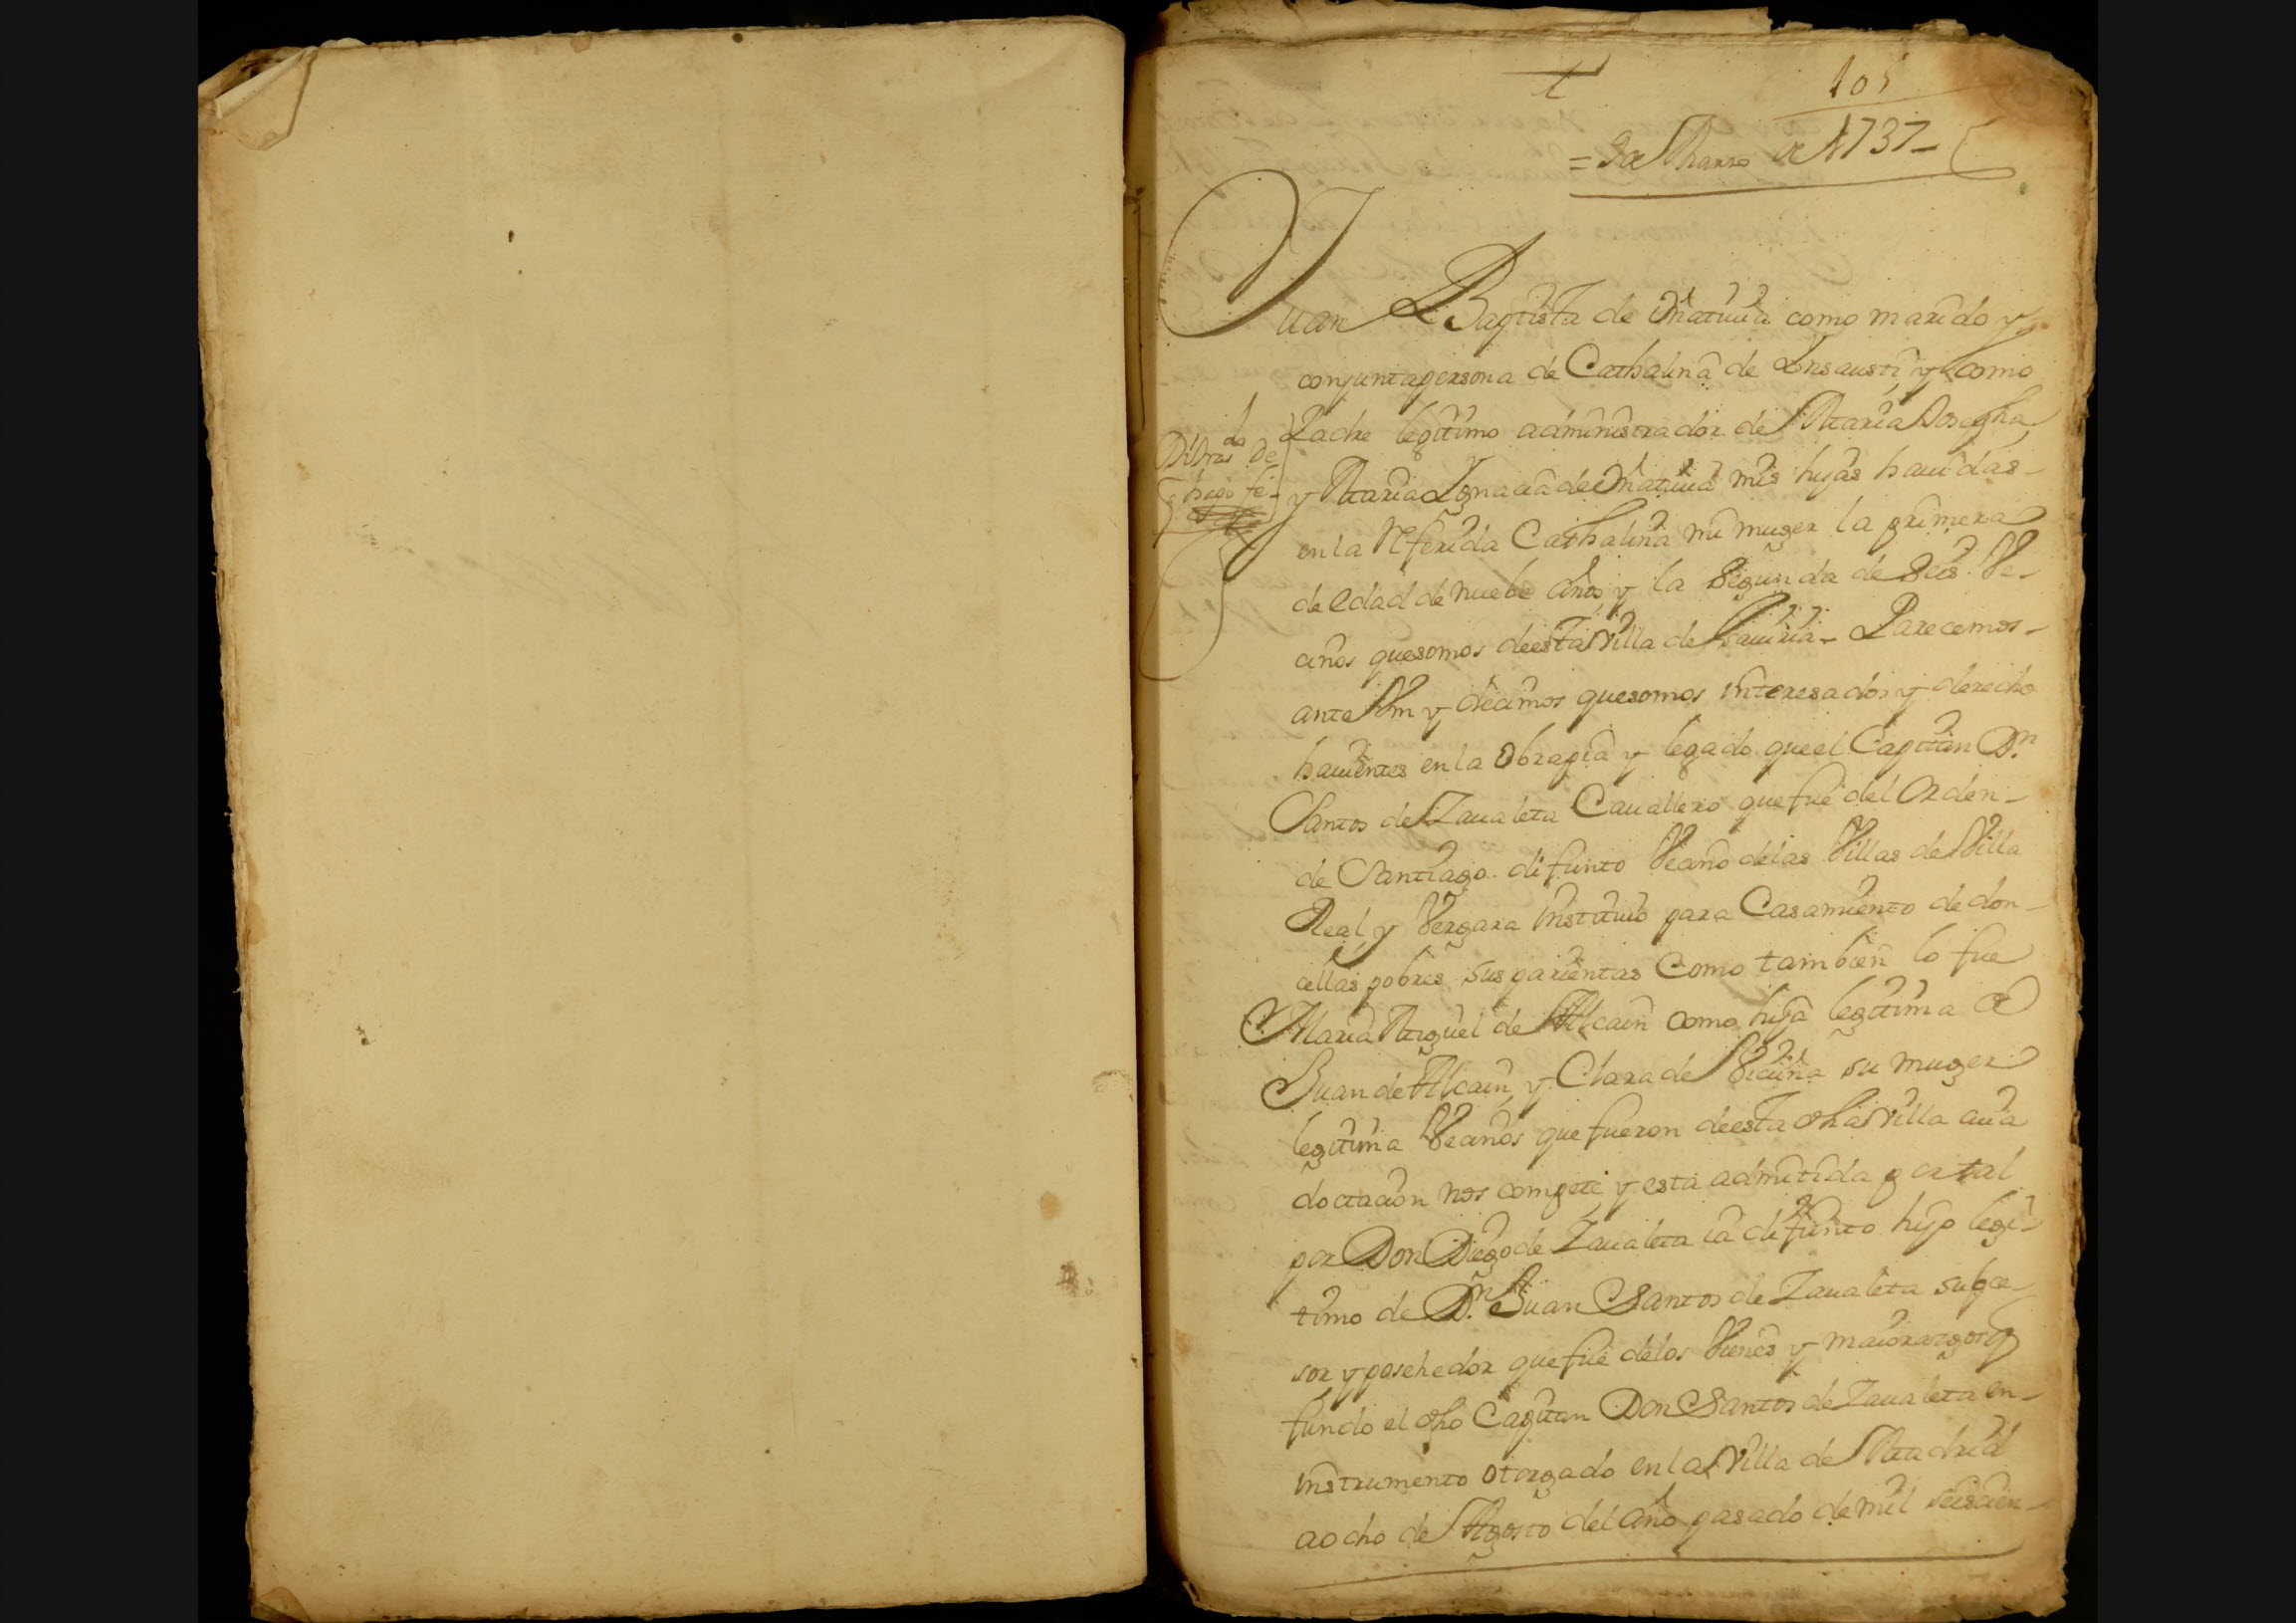 105
= 9 de Marzo de 1737 -
Juan Baptista de Matuuia como marido y
conjunta persona de Cathalina de Insausti, y como
Padre legitimo administrador de Maria Josepha
y Maria Ignacia de Matuuia mis hijas hauidas -
en la referida Cathalina mi muger la primera
de edad de nuebe años y la segunda de seis Ve-
cinos que somos de esta Villa de Seauria - Parecemos -
ante Vm y decimos que somos interesados y derecho
hauientes en la Obrapia y legado que el Capitan Dn.
Santos de Zaualeta Cauallero que fue del Orden -
de Santiago difunto Vecino de las Villas de Villa
Real, y Vergara instituio para Casamiento de don -
cellas pobres sus parientas Como tambien lo fue
Maria Miguel de Alcain como hija legitima de
Juan de Alcain, y Clara de Vicuña su muger
legitima Vecinos que fueron de esta dha Villa cuia
doctacion nos compete y esta admitida por tal
por Don Diego de Zaualeta ia difunto hijo legi-
timo de Dn. Juan Santos de Zaualeta subce-
sor y posehedor que fue de los Vienes y maiorazgos q
fundo el dho Capitan Don Santos de Zaualeta en -
instrumento otorgado en la Villa de Madrid
a ocho de Agosto del año pasado de mil seiscien -